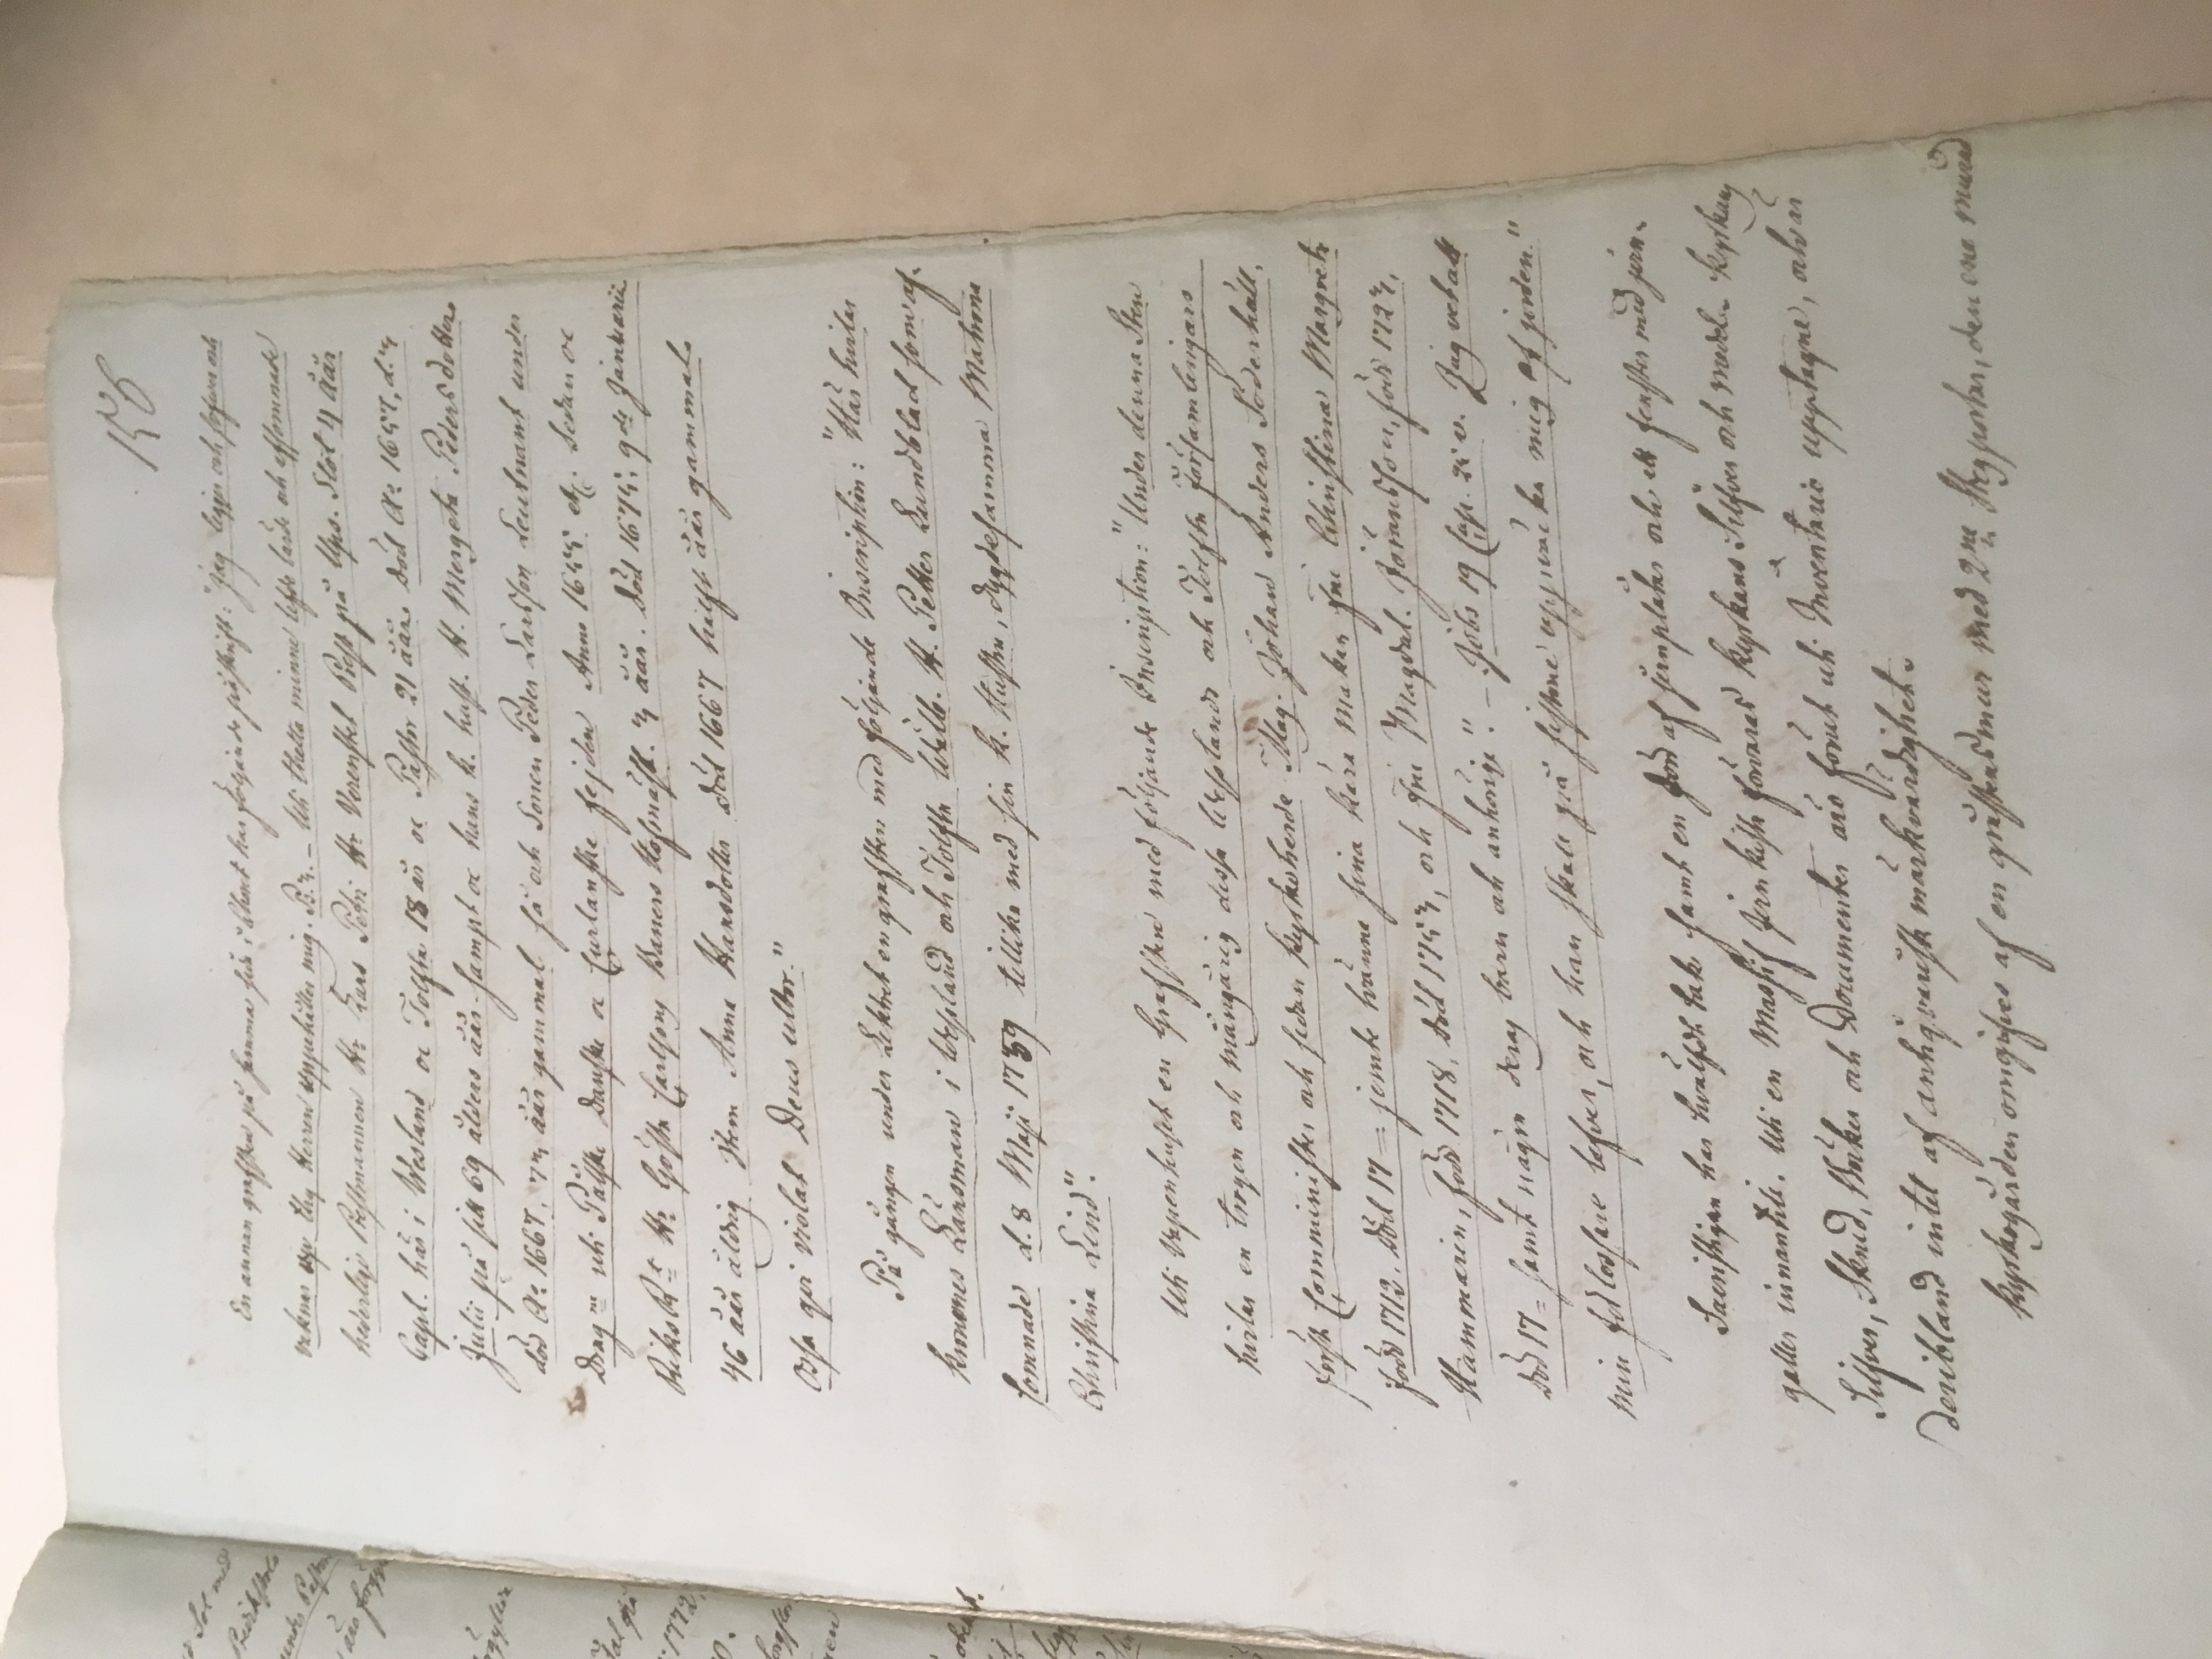 158
En annan grafsten på samma sida i Choret har följande påskrift: Jag ligger och sofwer och
vaknar up ty Herren uppehåller mig. Ps. 3. – Uti thetta minne lefde lärde och afsomnade
hederlige Prestmannen Hr Lars Petri Hr Verenskel Prest på Ups. Slot 4 åår
Capl. här i Wesland oc Tolfta 18 år oc Pastor 21 åår. Död Ao 1657, d. 4
Julii på sitt 69 ålders åår. Sampt oc hans k. hust. H. Mergeta Peders dotter
död Ao 1667, 73 åår gammal Så och Sonen Peder Larsson Leutnant under
Drag=ne uti Pålske Danske oc Curlanske fejden Anno 1655 etc. Sedan oc
Riks R=s Hr Gösta Carlsons Baners Hofmäst. 4 åår. Död 1675 9de Januarii
46 åår åldrig Item Anna Hansdotter död 1667 hälft åår gammal.
Ossa qvi violat Deus ultor."
På gången under Läktaren grafsten med följande Inscription: "Här hvilar
kronones Länsman i Wesland och Tolfta Wälb. H. Petter Lundblad som af-
somnade d. 8 Maji 1739 tillika med sin k. Hustru, dygdesamma Matrona
Christina Lind".
Uti Vapenhuset en Grafsten med följande Inscription: "Under denna Sten
hvilar en trogen och mångårig dessa Westlands och Tolfta församlingars
först Comminister och sedan Kyrkoherde Mag. Johan Anders Söderhäll,
född 1712. Död 17= jemte tvänne sina kära makar fru Christina Margreta
Hammarin, född 1718, död 1753, och fru Magdal. Göransson, född 1727,
död 17= samt några deras barn och anhörige". – Jobs 19 Cap. 25 v. Jag vet att
min förlossare lefver, och han skall på sistone uppväcka mig af jorden."
Sacristigan har hvälfdt tak samt en dörr af jernplåtar och ett fenster med jern-
galler innantil. Uti en Massif Jern kista förvaras Kyrkans Silfver och medel. Kyrkans
Silfver, Skrud, Böcker och Documenter äro förut uti Inventario upptagne, och är
deribland intet af antiqvarisk märkvärdighet.
Kyrkogården omgifves af en gråstensmur med 2ne Stegportar, den ena murad